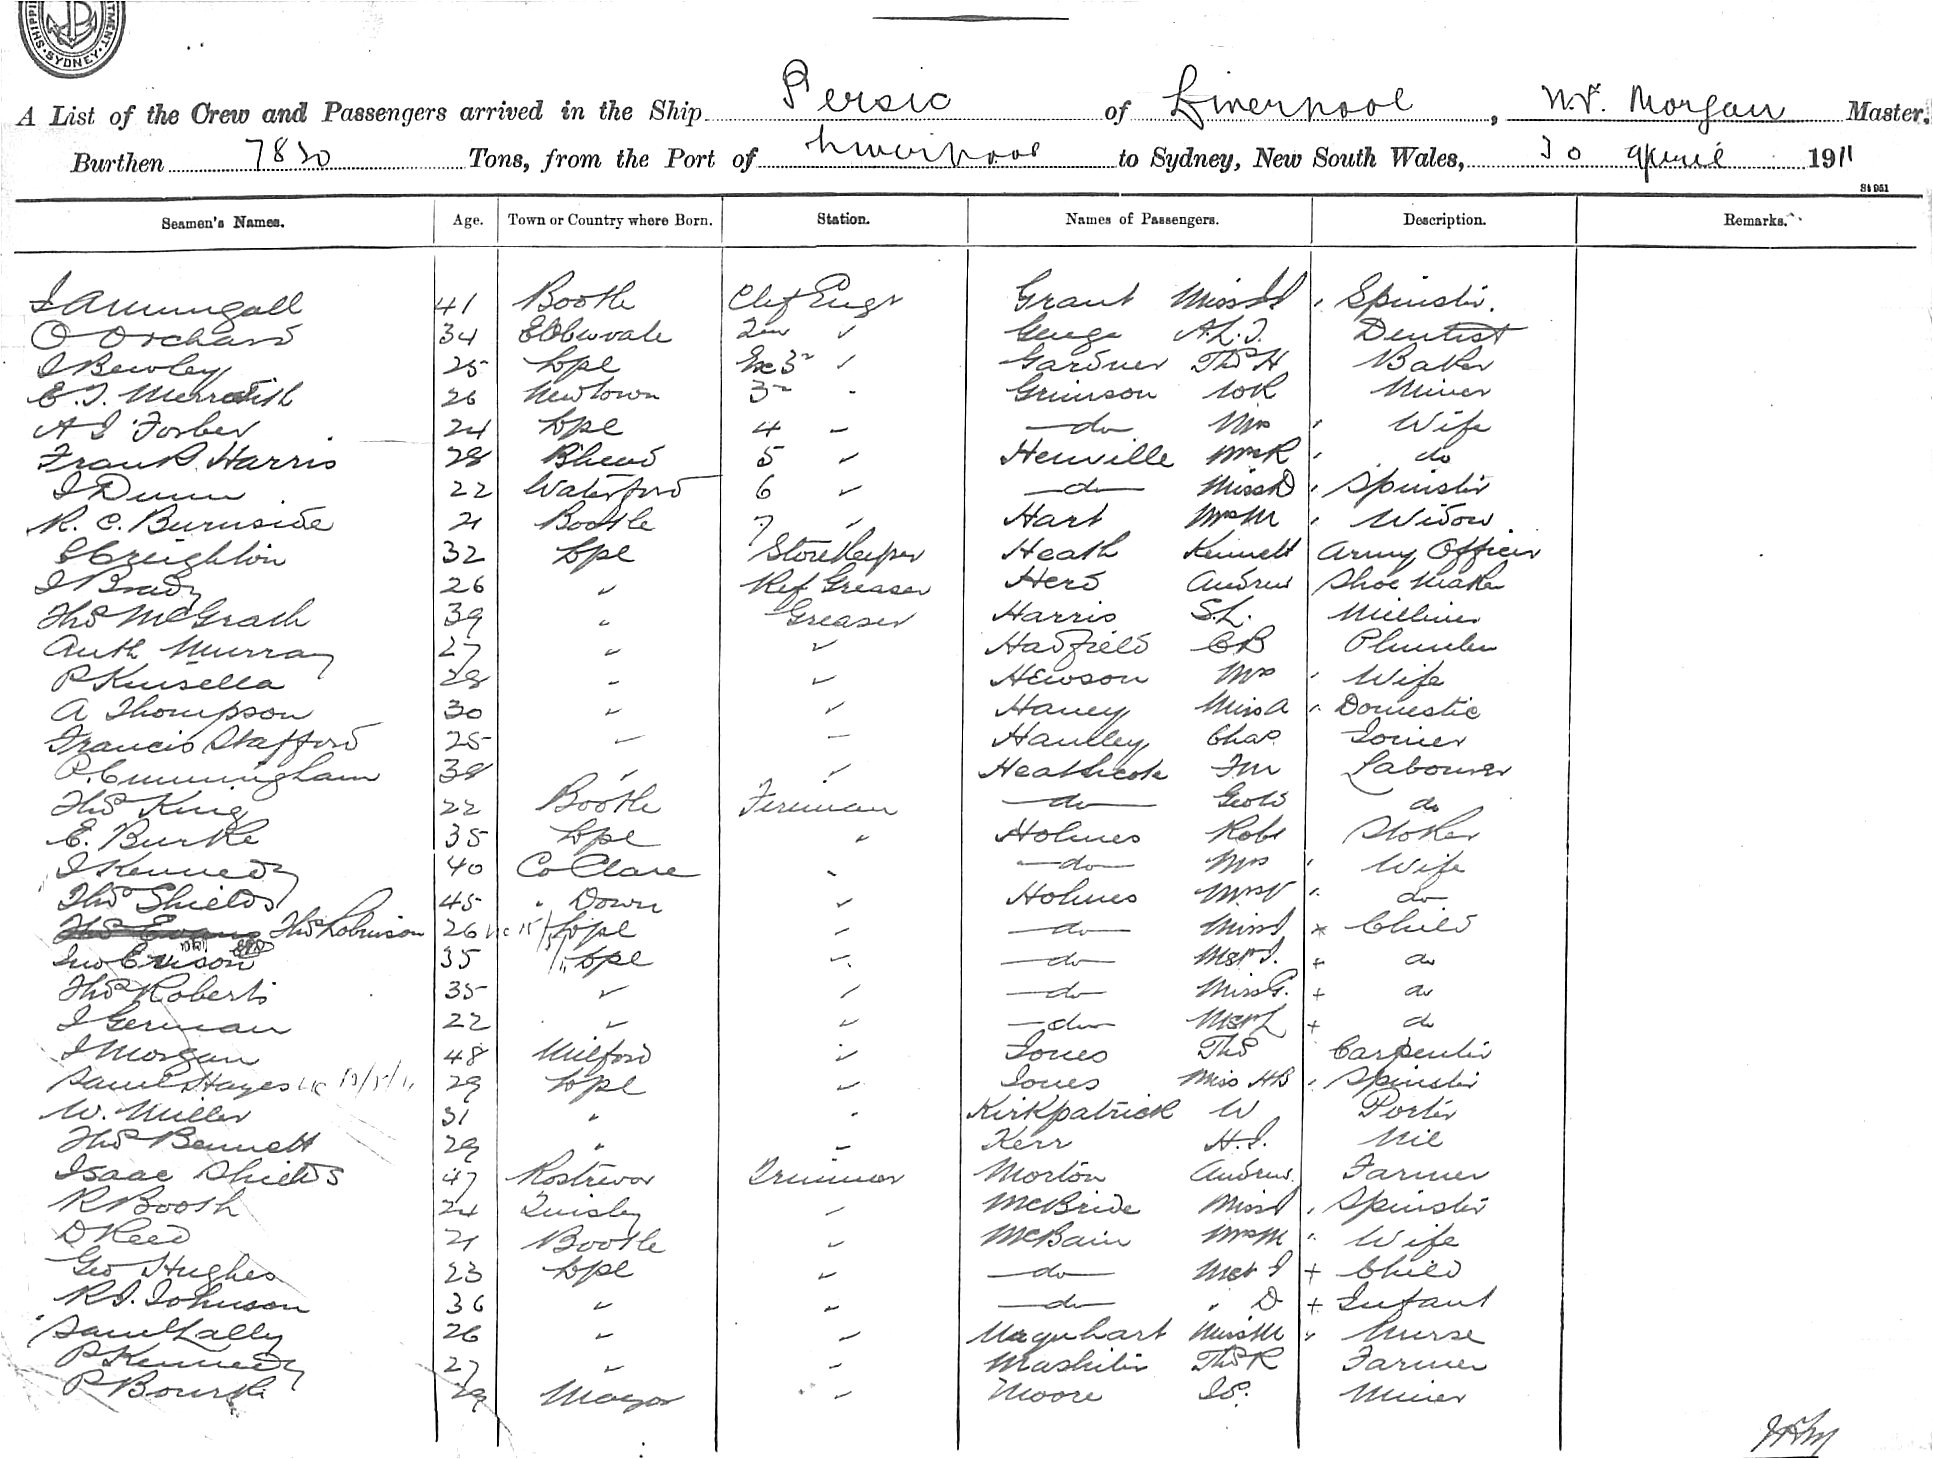 SHIPPI
TMENT.
SYDNEY
A List of the Crew and Passengers arrived in the Ship Persic of Liverpool, Morgan Master.
Burthen 7830 Tons, from the Port of Liverpool to Sydney, New South Wales, 30 April 1911
St 951
Seamen's Names. Age. Town or Country where Born. Station. Names of Passengers. Description. Remarks.
41 Bootle Chf Engr Grant Miss Spinster.
O Orchard 34 Ebbwvale 2nd " A.L.J. Dentist
J Bewley 25 Lpl 3rd " Gardner Thos H Baker
E. J. Meredith 26 Newtown 3rd " Grimson W R Miner
A J Forber 24 Lpl 4 " do Mrs " Wife
Frank Harris 28 B'head 5 " Henville Mrs R " do
J Dunn 22 Waterford 6 " do Miss D " Spinster
R. C. Burnside 21 Bootle 7 " Hart Mrs M " Widow
Creighton 32 Lpl Storekeeper Heath Kennett Army Officer
J Brady 26 " Ref Greaser Herd Andrew Shoe Maker
Thos McGrath 39 " Greaser Harris S.L. Milliner
Auth Murray 27 " " Hadfield C B Plumber
P Kinsella 28 " " Hewson Mrs " Wife
A Thompson 30 " " Haney Miss A " Domestic
Francis Stafford 25 " " Handley Chas Joiner
P. Cunningham 38 " " Heathcote Labourer
Thos King 22 Bootle Fireman do Geo do
E. Burke 35 Lpl " Holmes Robt Stoker
J Kennedy 40 Co Clare " do Mrs " Wife
Thos Shields 45 " Down " Holmes Mrs V " do
Thos Evans Thos Robinson 26 Lpl " do Miss J × Child
35 Lpl " do Mstr J. + do
Thos Roberts 35 " " do Miss G. + do
J German 22 " " do Mstr L + do
J Morgan 48 Milford " Jones Thos Carpenter
Saml Hayes 29 Lpl " Jones Miss H B " Spinster
W. Miller 31 " " Kirkpatrick W Porter
Thos Bennett 29 " " Kerr H. J. Nil
Isaac Shields 47 Rostrevor Trimmer Morton Andrew Farmer
R Booth 24 " McBride Miss J " Spinster
D Reed 21 Bootle " McBain Mrs M " Wife
Geo Hughes 23 Lpl " do Mstr J + Child
R. J. Johnson 36 " " do " D + Infant
Saml Lally 26 " " Urquhart Miss M " Nurse
P Kennedy 27 " " Thos R Farmer
P Bourke 29 Mayo " Moore Js. Miner